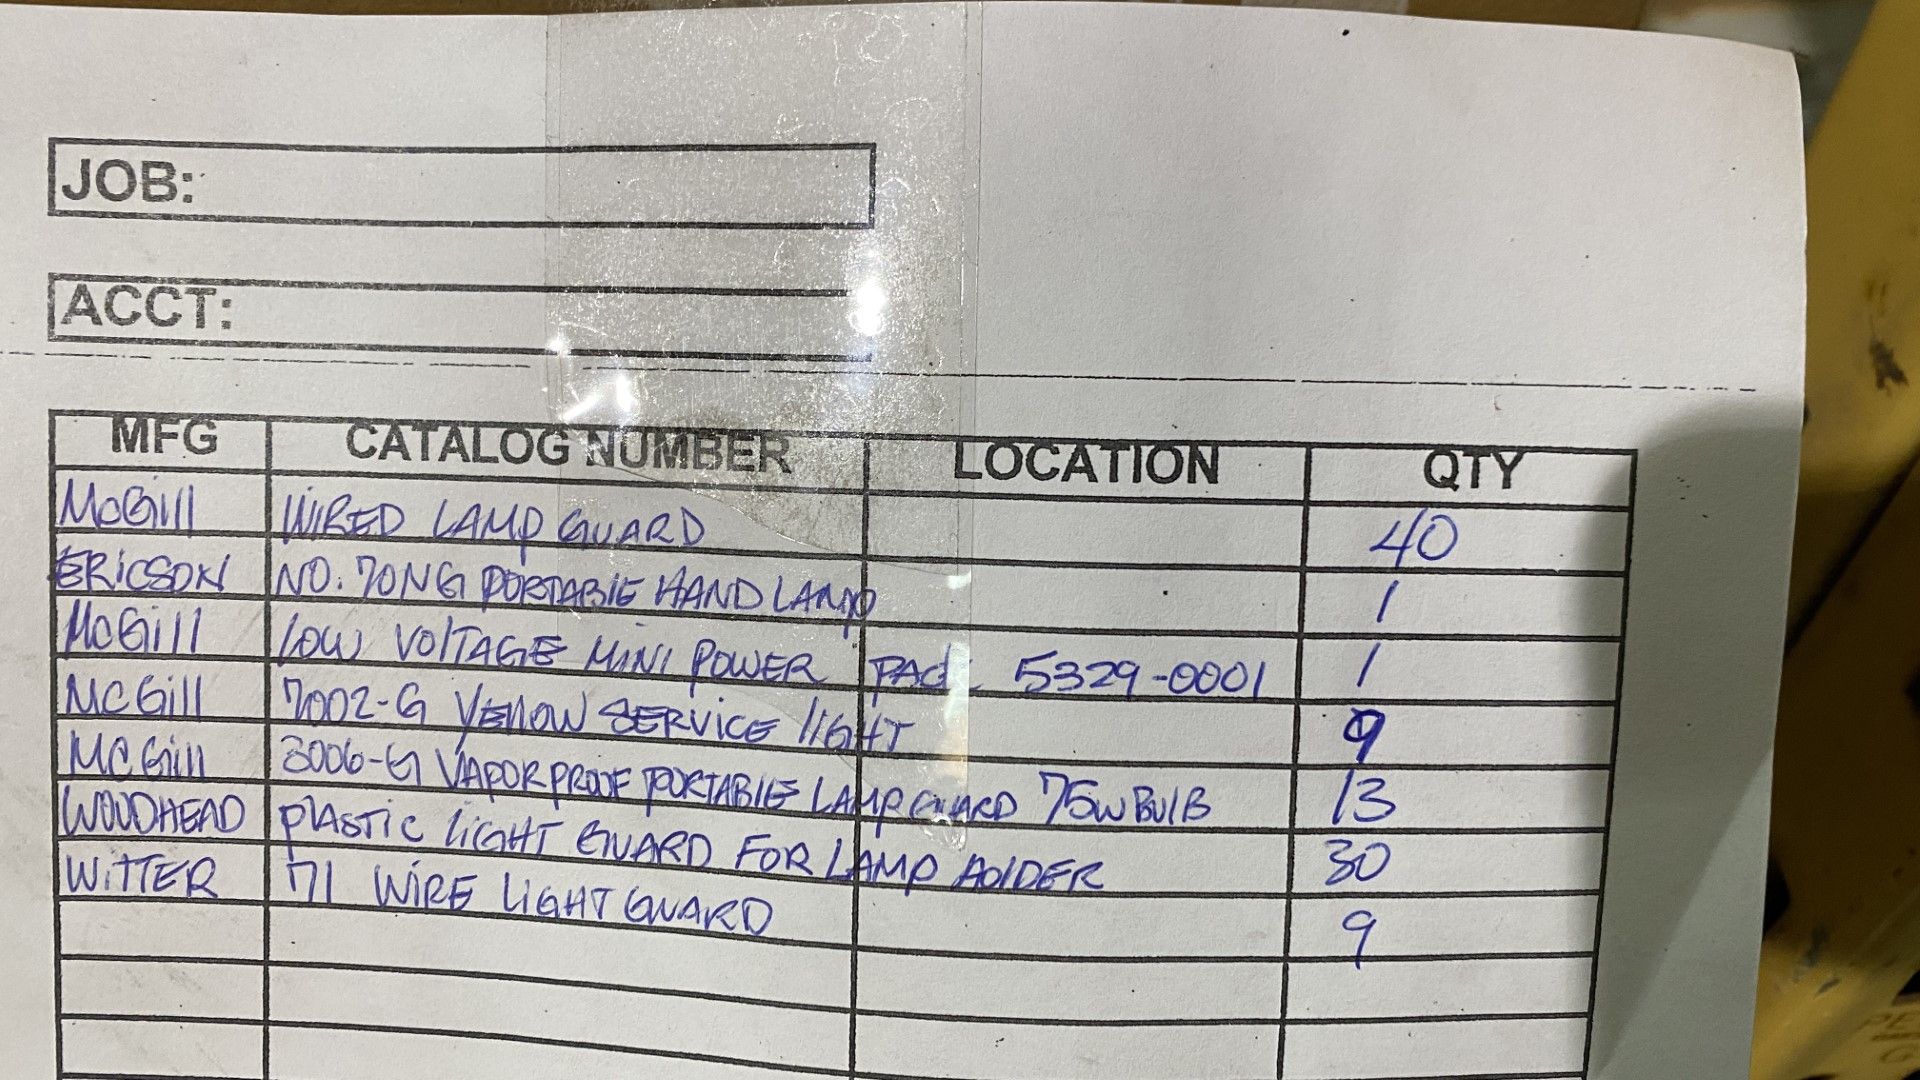 JOB:
ACCT:
MFG CATALOG NUMBER LOCATION QTY
McGill WIRED LAMP GUARD 40
ERICSON NO. 70NG PORTABLE HAND LAMP 1
McGill LOW VOLTAGE MINI POWER PACK 5329-0001 1
McGill 7002-G YELLOW SERVICE LIGHT 9
McGill 3006-G VAPORPROOF PORTABLE LAMP GUARD 75W BULB 13
WOODHEAD PLASTIC LIGHT GUARD FOR LAMP HOLDER 30
WITTER 71 WIRE LIGHT GUARD 9